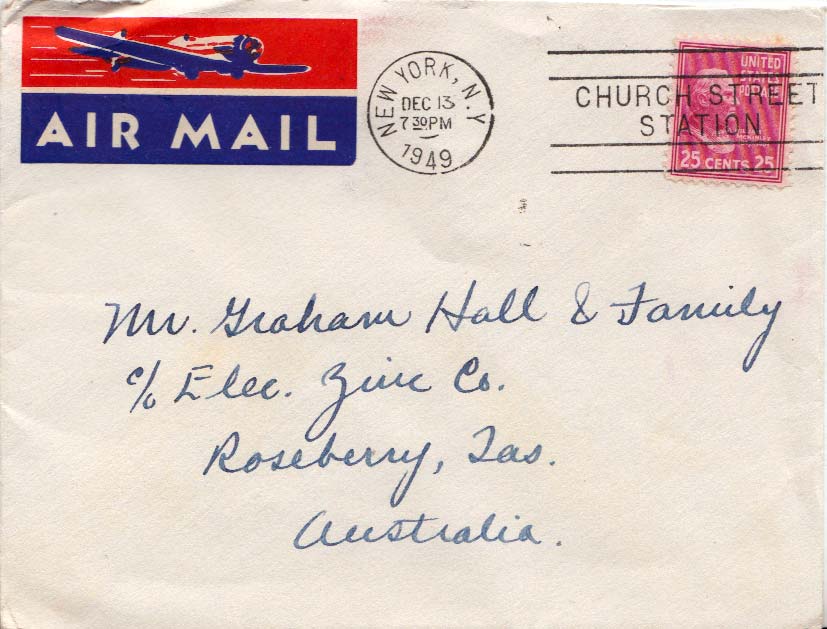 AIR MAIL
NEW YORK, N.Y
DEC 13
7 30 PM
1949
CHURCH STREET
STATION
UNITED
STATES
POSTAGE
25 CENTS 25
Mr. Graham Hall & Family
c/o Elec. Zinc Co.
Roseberry, Tas.
Australia.